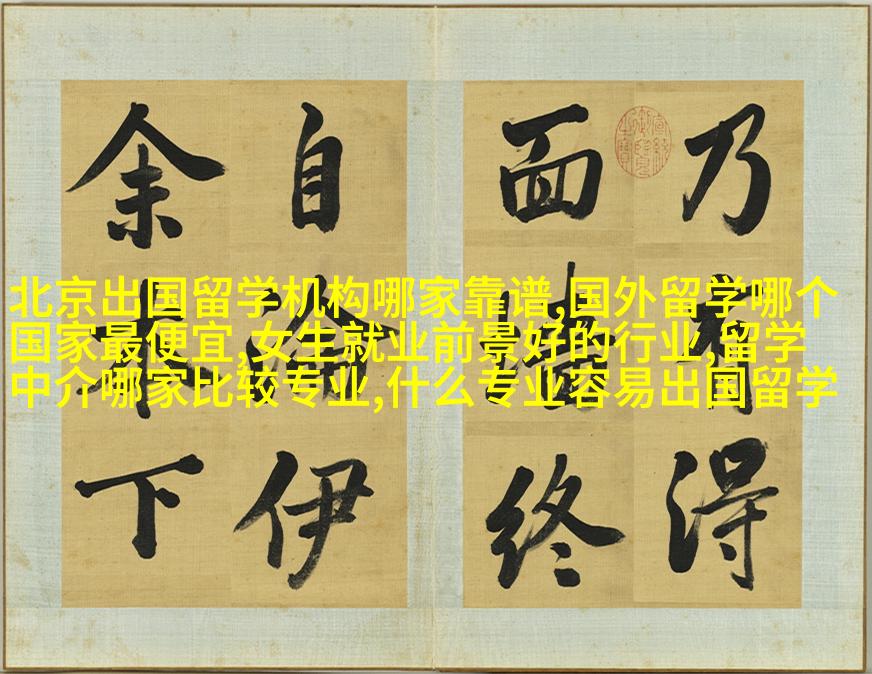 北京出国留学机构哪家靠谱,国外留学哪个
国家最便宜,女生就业前景好的行业,留学
中介哪家比较专业,什么专业容易出国留学
乃有得
面墻终
自伊
余本下